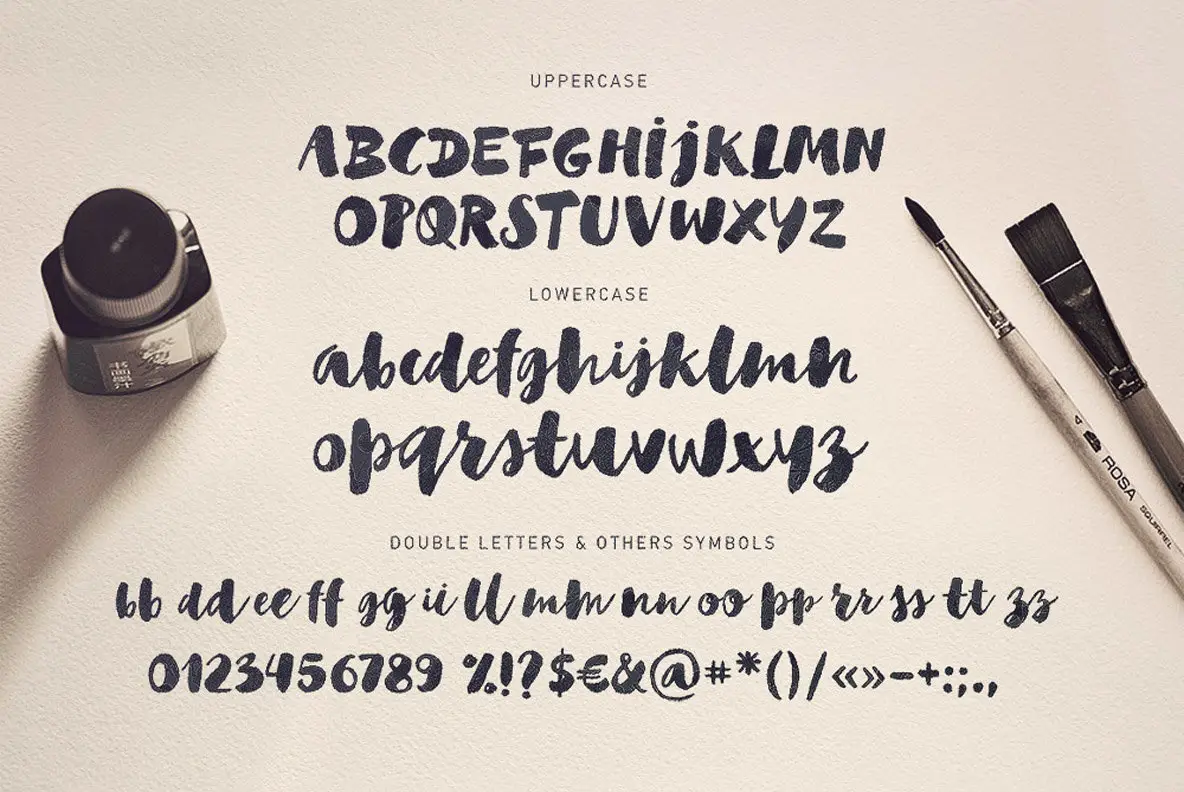 UPPERCASE
ABCDEFGHijKLMN
OPQRSTUVWXYZ
LOWERCASE
abcdefghijklmn
opqrstuvwxyz
DOUBLE LETTERS & OTHERS SYMBOLS
bb dd ee ff gg ii ll mm nn oo pp rr ss tt zz
0123456789 %!?$€&@#*()/«»-+:;.,
书画墨汁
4 ROSA SQUIRREL